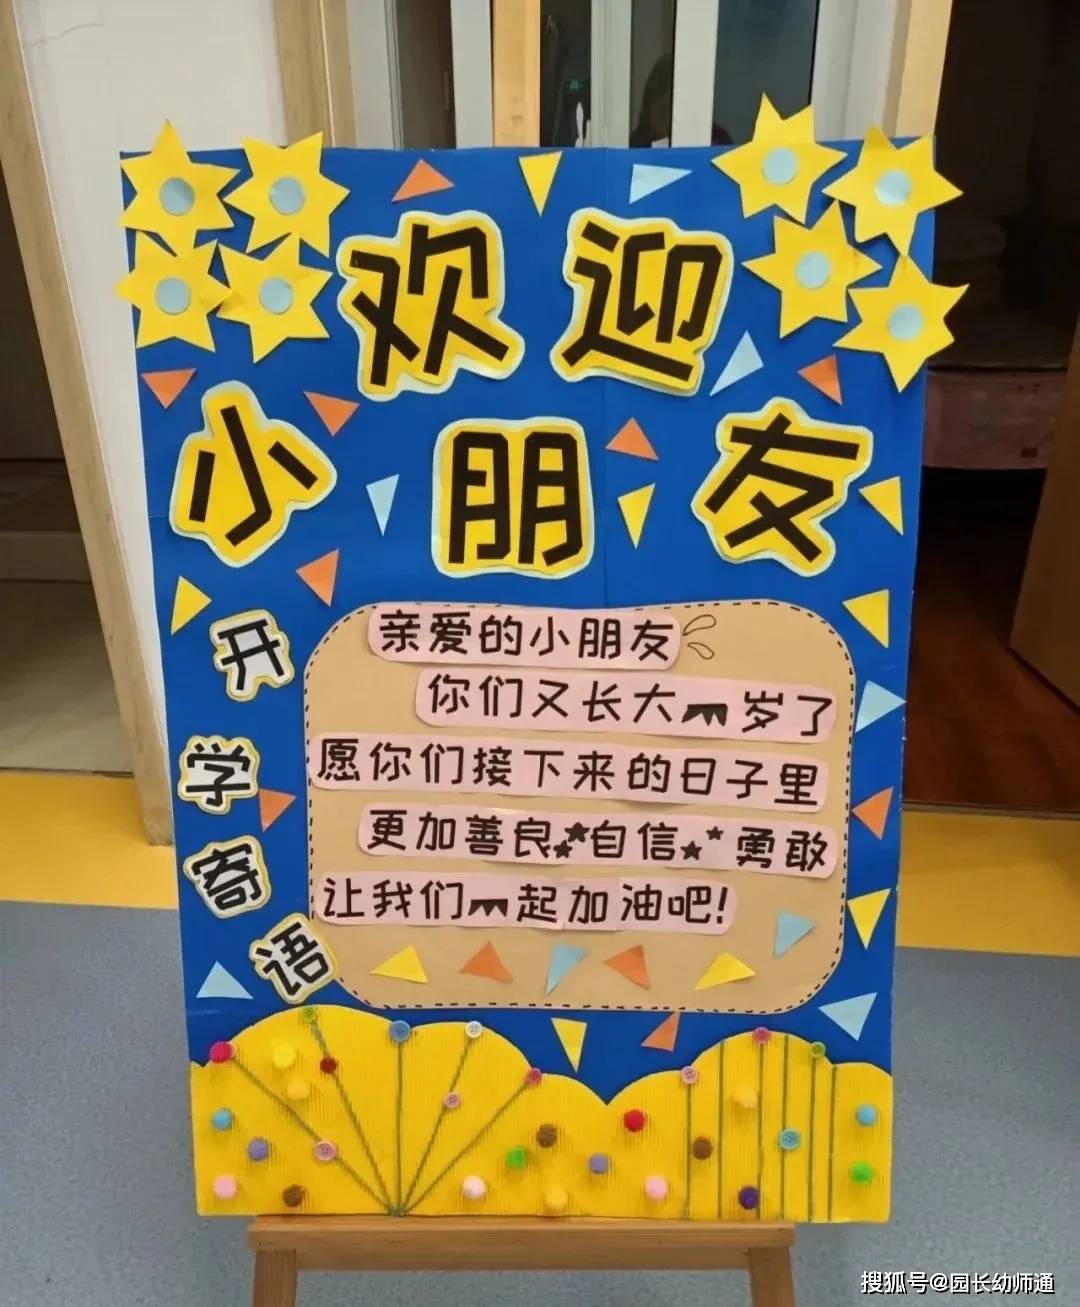 欢迎
小朋友
开学寄语
亲爱的小朋友
你们又长大一岁了
愿你们接下来的日子里
更加善良自信勇敢
让我们一起加油吧！
搜狐号@园长幼师通